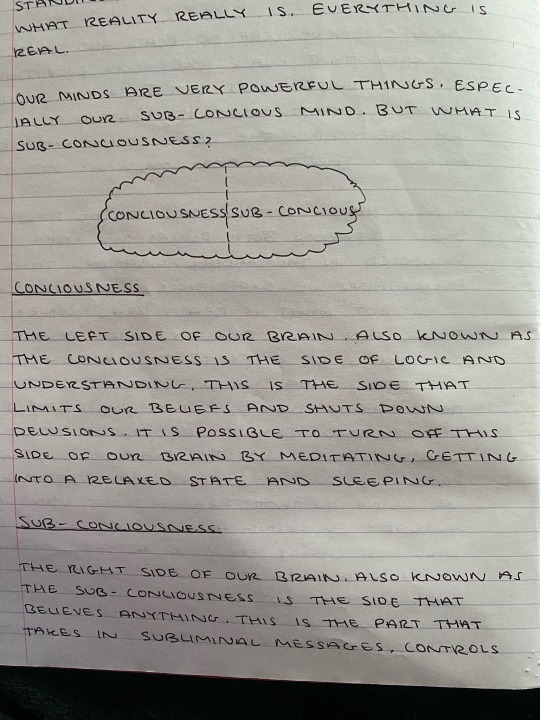 WHAT REALITY REALLY IS. EVERYTHING IS
REAL.
OUR MINDS ARE VERY POWERFUL THINGS. ESPEC-
IALLY OUR SUB-CONCIOUS MIND. BUT WHAT IS
SUB-CONCIOUSNESS?
CONCIOUSNESS SUB-CONCIOUS
CONCIOUSNESS
THE LEFT SIDE OF OUR BRAIN. ALSO KNOWN AS
THE CONCIOUSNESS IS THE SIDE OF LOGIC AND
UNDERSTANDING. THIS IS THE SIDE THAT
LIMITS OUR BELIEFS AND SHUTS DOWN
DELUSIONS. IT IS POSSIBLE TO TURN OFF THIS
SIDE OF OUR BRAIN BY MEDITATING, GETTING
INTO A RELAXED STATE AND SLEEPING.
SUB-CONCIOUSNESS
THE RIGHT SIDE OF OUR BRAIN. ALSO KNOWN AS
THE SUB-CONCIOUSNESS IS THE SIDE THAT
BELIEVES ANYTHING. THIS IS THE PART THAT
TAKES IN SUBLIMINAL MESSAGES, CONTROLS